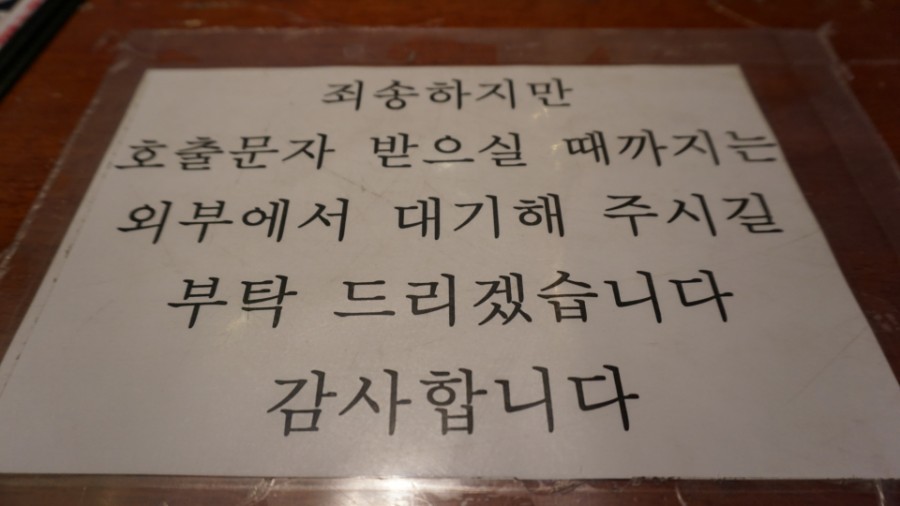 죄송하지만
호출문자 받으실 때까지는
외부에서 대기해 주시길
부탁 드리겠습니다
감사합니다